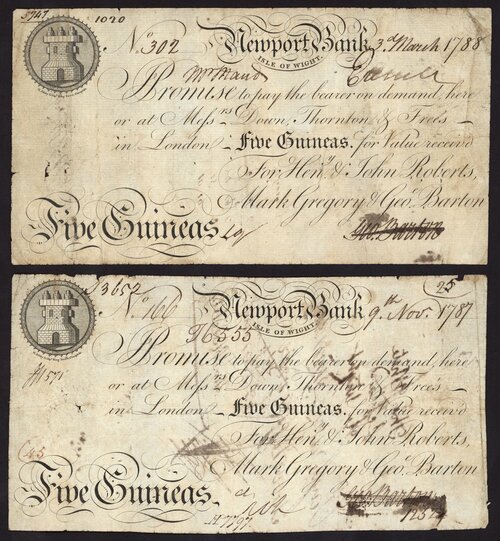 5747 1020
No. 302 Newport Bank 3rd March 1788
ISLE OF WIGHT.
Promise to pay the bearer on demand, here
or at Messrs Down, Thornton & Free's
in London Five Guineas, for Value receiv'd
For Heny. & John Roberts,
Mark Gregory & Geo. Barton
Five Guineas.
Geo. Barton
3652 25
No. 166 Newport Bank 9th Nov. 1787
ISLE OF WIGHT.
36555
Promise to pay the bearer on demand, here
or at Messrs Down, Thornton & Free's
in London Five Guineas, for Value receiv'd
For Heny. & John Roberts,
Mark Gregory & Geo. Barton
45
Five Guineas.
Geo. Barton